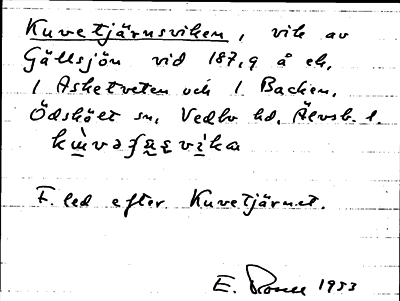 Kuvetjärnsviken, vik av
Gällsjön vid 187,9 å ek,
1 Asketveten och 1 Backen,
Ödskölt sn, Vedbo hd, Älvsb. l.
F. led efter Kuvetjärnet.
E. 1933